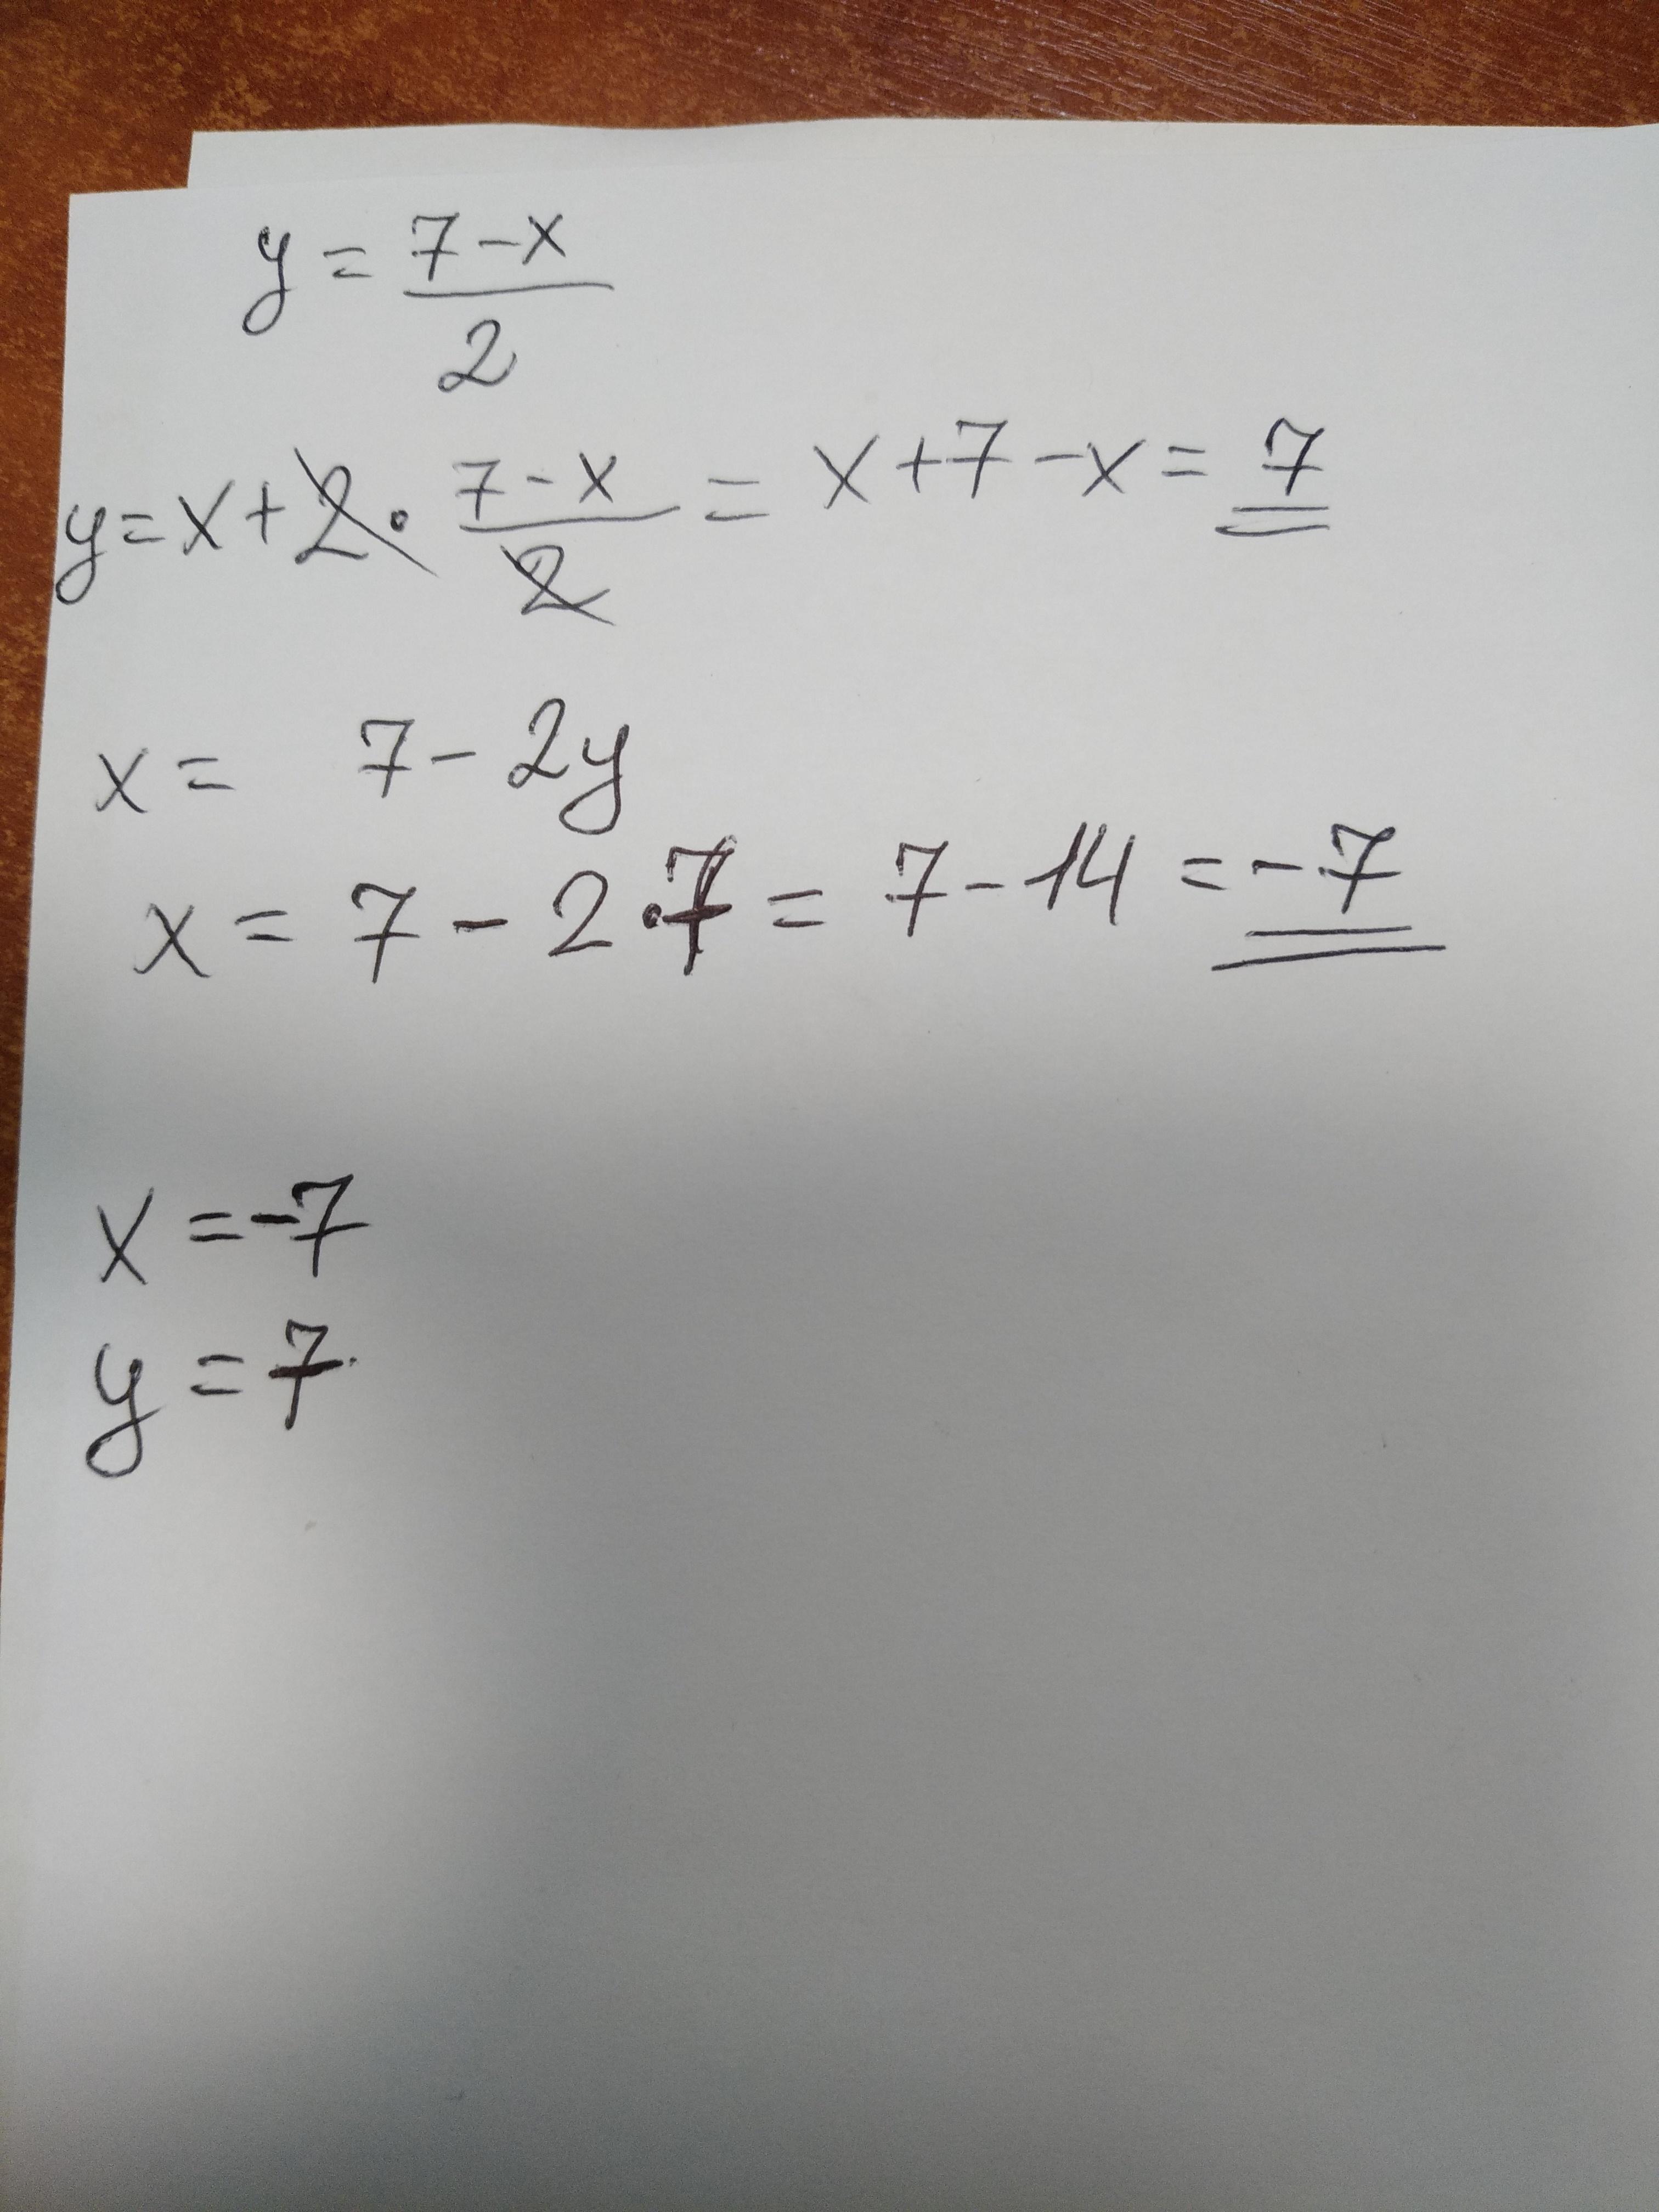 y = (7-x)/2
y = x + 2 · (7-x)/2 = x + 7 - x = 7
x = 7 - 2y
x = 7 - 2 · 7 = 7 - 14 = -7
x = -7
y = 7